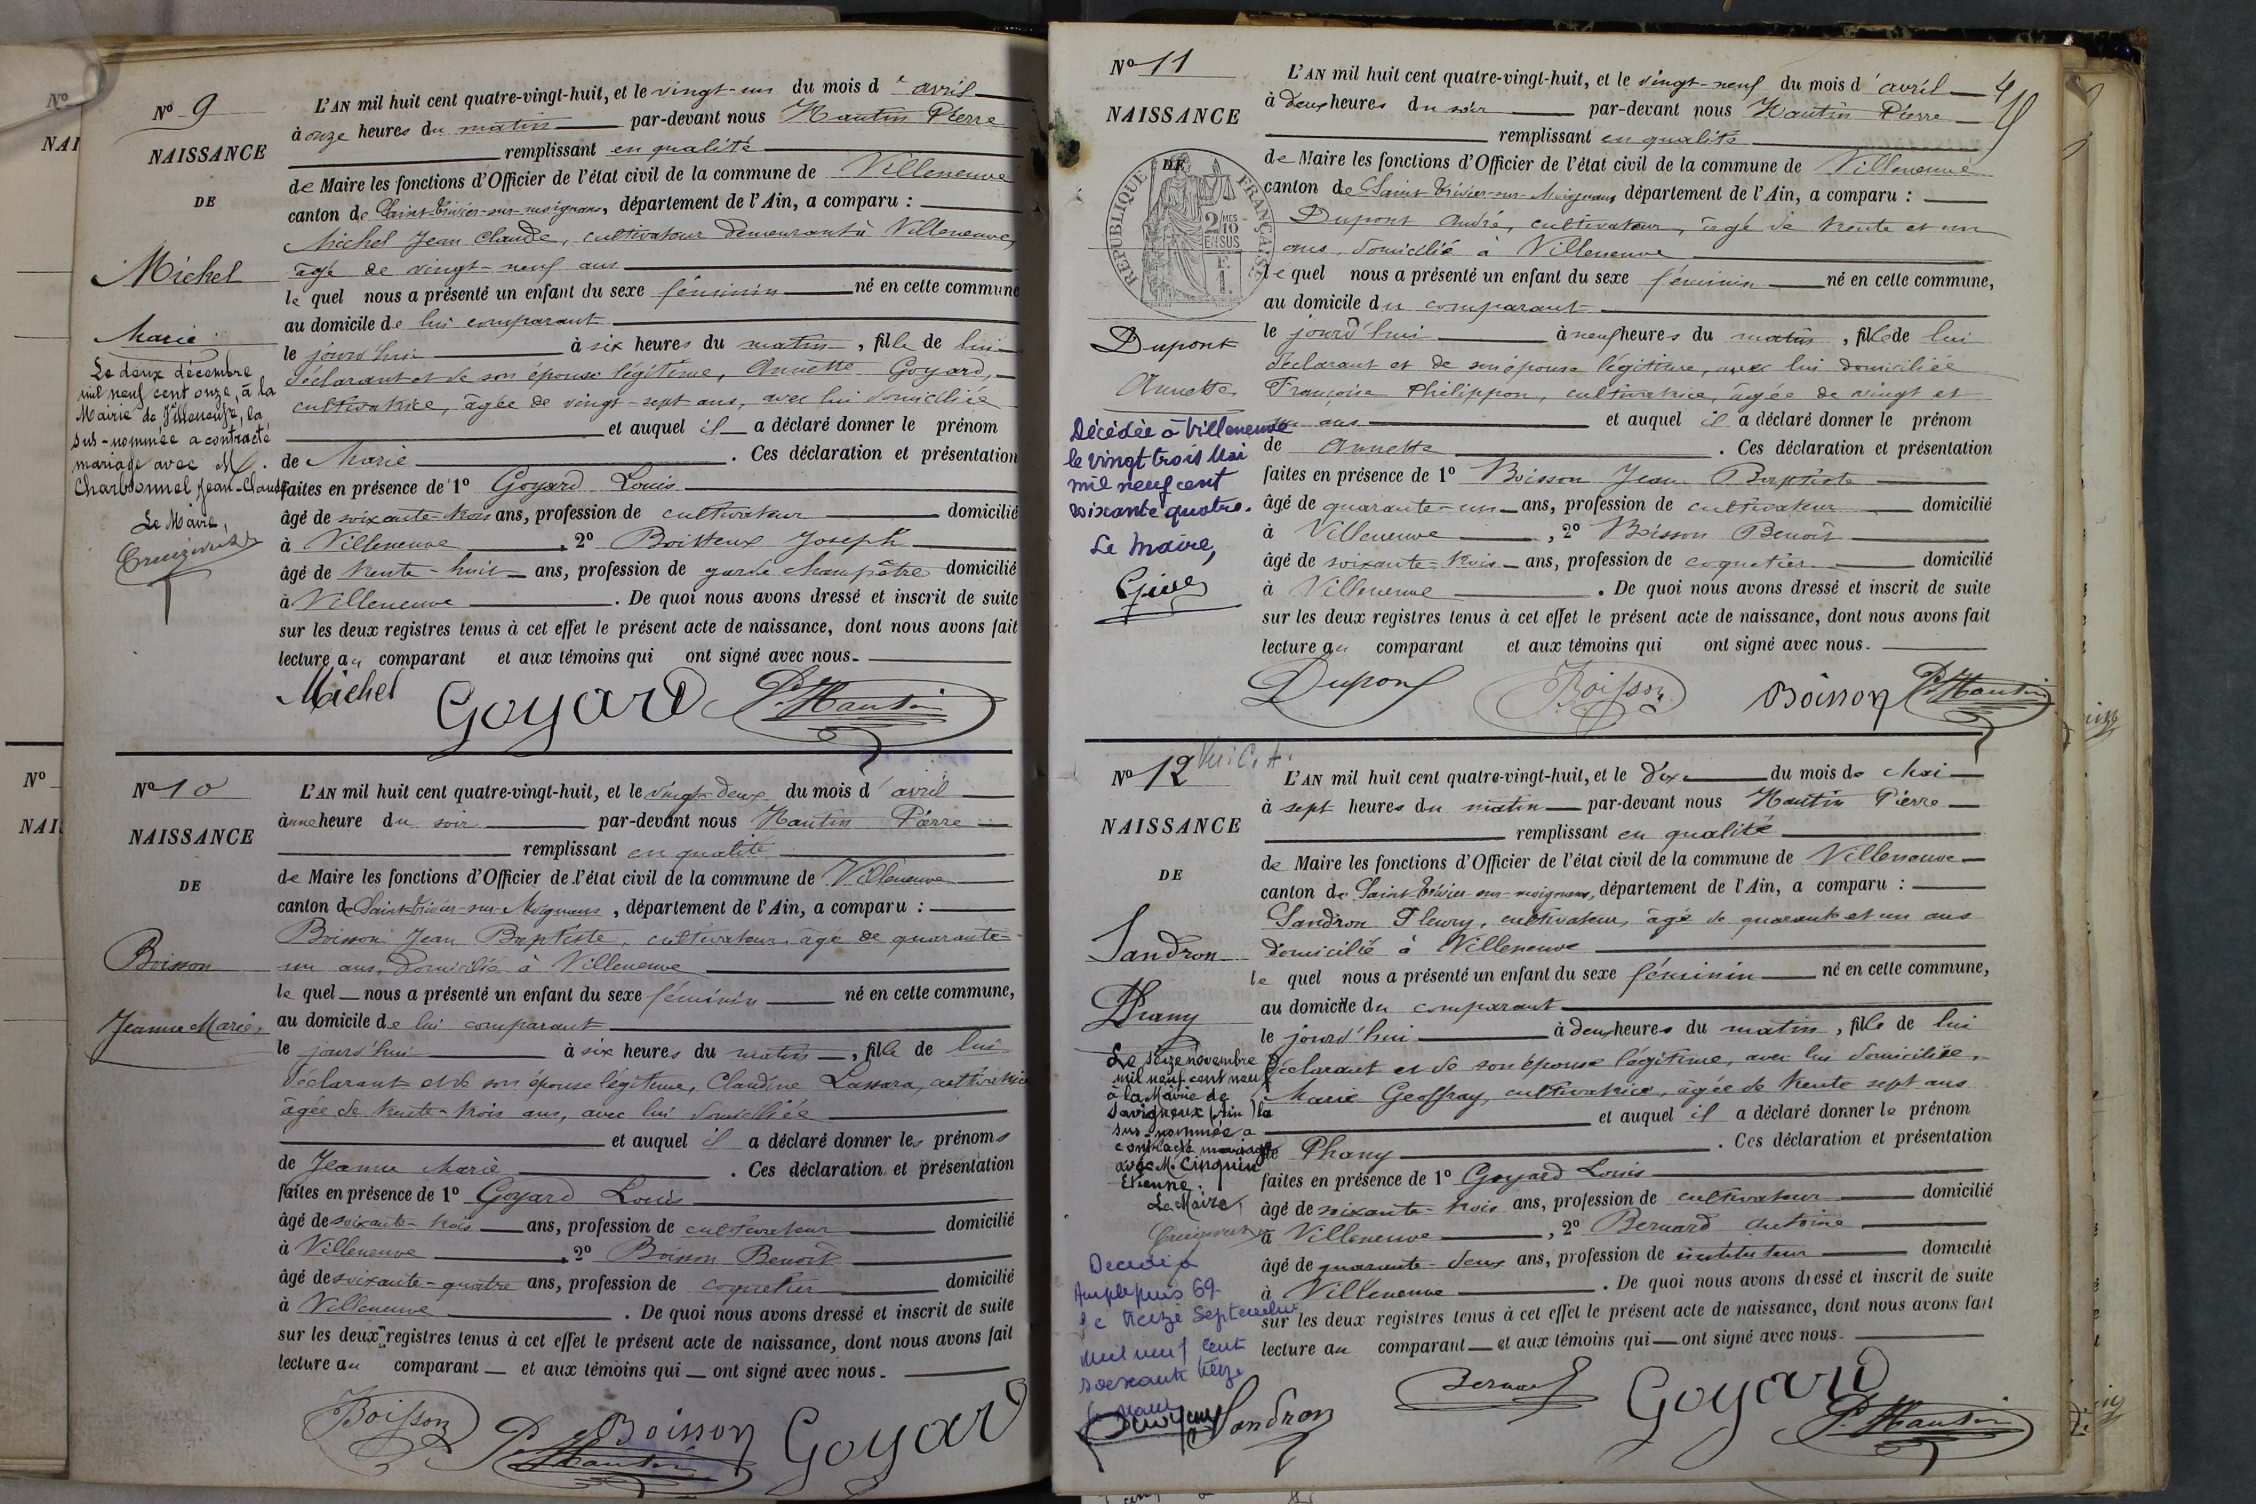 Nº 9
NAISSANCE
DE
Michel
Marie
Le deux décembre
mil neuf cent onze, à la
Mairie de Villeneuve, la
sus-nommée a contracté
mariage avec M.
Charbonnel Jean-Claude
Le Maire,
L'AN mil huit cent quatre-vingt-huit, et le vingt-un du mois d'avril
à onze heures du matin par-devant nous Hautin Pierre
remplissant en qualité
de Maire les fonctions d'Officier de l'état civil de la commune de Villeneuve
canton de Saint-Trivier-sur-moignans, département de l'Ain, a comparu :
Michel Jean Claude, cultivateur demeurant à Villeneuve,
âgé de vingt-neuf ans
le quel nous a présenté un enfant du sexe féminin né en cette commune
au domicile de lui comparant
le jourd'hui à six heures du matin, fille de lui
déclarant et de son épouse légitime, Annette Goyard,
cultivatrice, âgée de vingt-sept ans, avec lui domiciliée
et auquel il a déclaré donner le prénom
de Marie . Ces déclaration et présentation
faites en présence de 1º Goyard Louis
âgé de soixante-trois ans, profession de cultivateur domicilié
à Villeneuve , 2º Boitteux Joseph
âgé de trente-huit ans, profession de garde champêtre domicilié
à Villeneuve . De quoi nous avons dressé et inscrit de suite
sur les deux registres tenus à cet effet le présent acte de naissance, dont nous avons fait
lecture au comparant et aux témoins qui ont signé avec nous.
Michel Goyard P. Hautin
Nº 10
NAISSANCE
DE
Boisson
Jeanne Marie
L'AN mil huit cent quatre-vingt-huit, et le vingt-deux du mois d'avril
à une heure du soir par-devant nous Hautin Pierre
remplissant en qualité
de Maire les fonctions d'Officier de l'état civil de la commune de Villeneuve
canton de Saint-Trivier-sur-Moignans, département de l'Ain, a comparu :
Boisson Jean Baptiste, cultivateur, âgé de quarante-
un ans, domicilié à Villeneuve
le quel nous a présenté un enfant du sexe féminin né en cette commune,
au domicile de lui comparant
le jourd'hui à six heures du matin, fille de lui
déclarant et de son épouse légitime, Claudine Lassara, cultivatrice
âgée de trente-trois ans, avec lui domiciliée
et auquel il a déclaré donner les prénoms
de Jeanne Marie . Ces déclaration et présentation
faites en présence de 1º Goyard Louis
âgé de soixante-trois ans, profession de cultivateur domicilié
à Villeneuve , 2º Boisson Benoît
âgé de soixante-quatre ans, profession de coquetier domicilié
à Villeneuve . De quoi nous avons dressé et inscrit de suite
sur les deux registres tenus à cet effet le présent acte de naissance, dont nous avons fait
lecture au comparant et aux témoins qui ont signé avec nous.
Boisson P. Hautin Boisson Goyard
Nº 11
NAISSANCE
DE
RÉPUBLIQUE FRANÇAISE
2/10
EN SUS
Dupont
Annette
Décédée à Villeneuve
le vingt trois Mai
mil neuf cent
soixante quatre.
Le Maire,
L'AN mil huit cent quatre-vingt-huit, et le vingt-neuf du mois d'avril
à deux heures du soir par-devant nous Hautin Pierre
remplissant en qualité
de Maire les fonctions d'Officier de l'état civil de la commune de Villeneuve
canton de Saint-Trivier-sur-Moignans, département de l'Ain, a comparu :
Dupont André, cultivateur, âgé de trente et un
ans, domicilié à Villeneuve
le quel nous a présenté un enfant du sexe féminin né en cette commune,
au domicile du comparant
le jourd'hui à neuf heures du matin, fille de lui
déclarant et de son épouse légitime, avec lui domiciliée
Françoise Philippon, cultivatrice, âgée de vingt et
un ans et auquel il a déclaré donner le prénom
de Annette . Ces déclaration et présentation
faites en présence de 1º Boisson Jean Baptiste
âgé de quarante-un ans, profession de cultivateur domicilié
à Villeneuve , 2º Boisson Benoît
âgé de soixante-trois ans, profession de coquetier domicilié
à Villeneuve . De quoi nous avons dressé et inscrit de suite
sur les deux registres tenus à cet effet le présent acte de naissance, dont nous avons fait
lecture au comparant et aux témoins qui ont signé avec nous.
Dupont Boisson Boisson P. Hautin
Nº 12
NAISSANCE
DE
Sandron
Phany
Le seize novembre
mil neuf cent neuf
à la Mairie de
Savigneux (Ain) la
sus-nommée a
contracté mariage
avec M. Cinquin
Etienne.
Le Maire,
Décédé à
Amplepuis 69
le treize Septembre
mil neuf cent
soixante treize
Le Maire
L'AN mil huit cent quatre-vingt-huit, et le dix du mois de Mai
à sept heures du matin par-devant nous Hautin Pierre
remplissant en qualité
de Maire les fonctions d'Officier de l'état civil de la commune de Villeneuve
canton de Saint-Trivier-sur-moignans, département de l'Ain, a comparu :
Sandron Fleury, cultivateur, âgé de quarante et un ans
domicilié à Villeneuve
le quel nous a présenté un enfant du sexe féminin né en cette commune,
au domicile du comparant
le jourd'hui à deux heures du matin, fille de lui
déclarant et de son épouse légitime, avec lui domiciliée,
Marie Geoffray, cultivatrice, âgée de trente sept ans
et auquel il a déclaré donner le prénom
de Phany . Ces déclaration et présentation
faites en présence de 1º Goyard Louis
âgé de soixante-trois ans, profession de cultivateur domicilié
à Villeneuve , 2º Bernard Antoine
âgé de quarante-deux ans, profession de instituteur domicilié
à Villeneuve . De quoi nous avons dressé et inscrit de suite
sur les deux registres tenus à cet effet le présent acte de naissance, dont nous avons fait
lecture au comparant et aux témoins qui ont signé avec nous.
Sandron Bernard Goyard P. Hautin